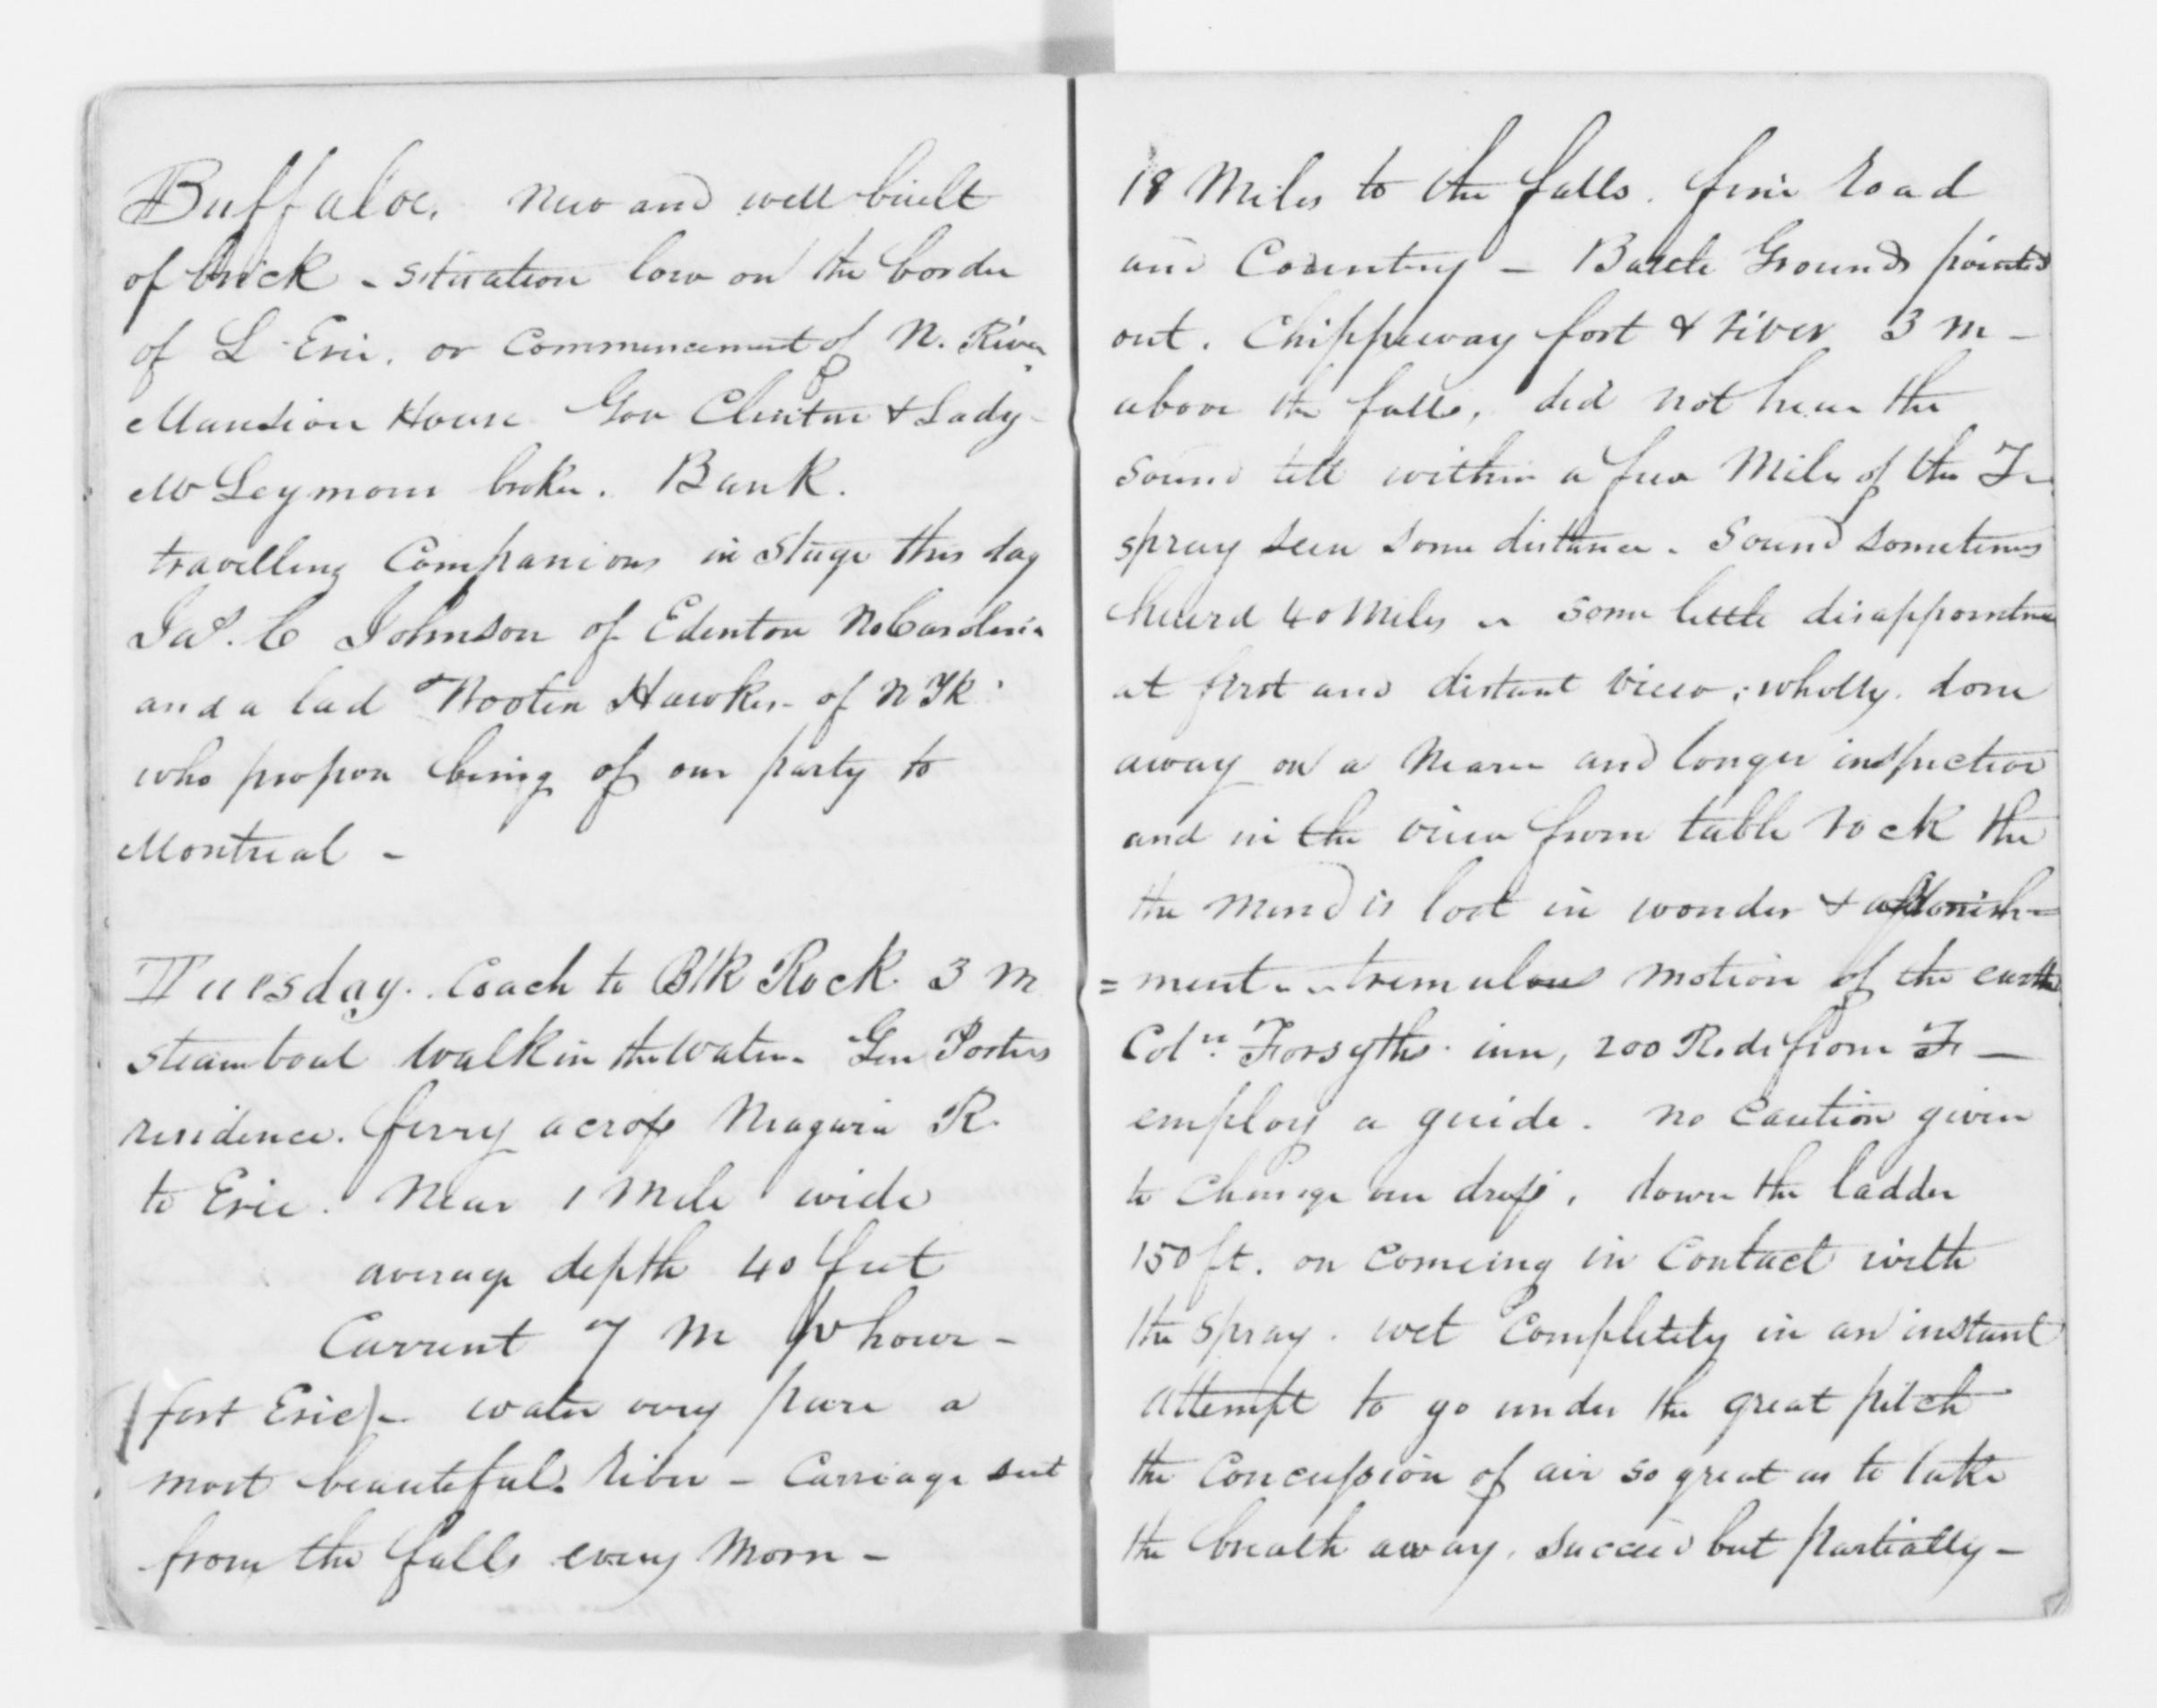 Buffaloe. New and well built
of brick - situation low on the border
of L Erie. or Commencement of N. River
Mansion House Gov Clinton & Lady -
Mr Leymour broker. Bank.
travelling Companions in Stage this day
Jas. C Johnson of Edenton No Carolina
and a lad Wooten Hawkes - of N Yk
who propose being of our party to
Montreal -
Tuesday. Coach to Blk Rock. 3 m
Steamboat Walk in the Water - Gen Porters
residence. ferry across Niagara R.
to Erie. Near 1 Mile wide
average depth 40 feet
Current 7 m pr hour -
(fort Erie) - water very pure a
most beautiful river - Carriage sent
from the falls every Morn -
18 Miles to the falls. fine road
and Country - Battle Grounds pointed
out. Chippeway fort & river 3 m -
above the falls, did not hear the
Sound till within a few Miles of the F
spray seen some distance - Sound sometimes
heard 40 Miles - some little disappointme
at first and distant view; wholly done
away on a nearer and longer inspection
and in the view from table rock the
the mind is lost in wonder & astonish=
=ment - - tremulous motion of the earth
Coln. Forsyths inn, 200 Rods from F -
employ a guide. no Caution given
to Change our dress, down the ladder
150 ft. on comeing in Contact with
the spray. wet Completely in an instant
attempt to go under the great pitch
the Concussion of air so great as to take
the breath away. succeed but partially -